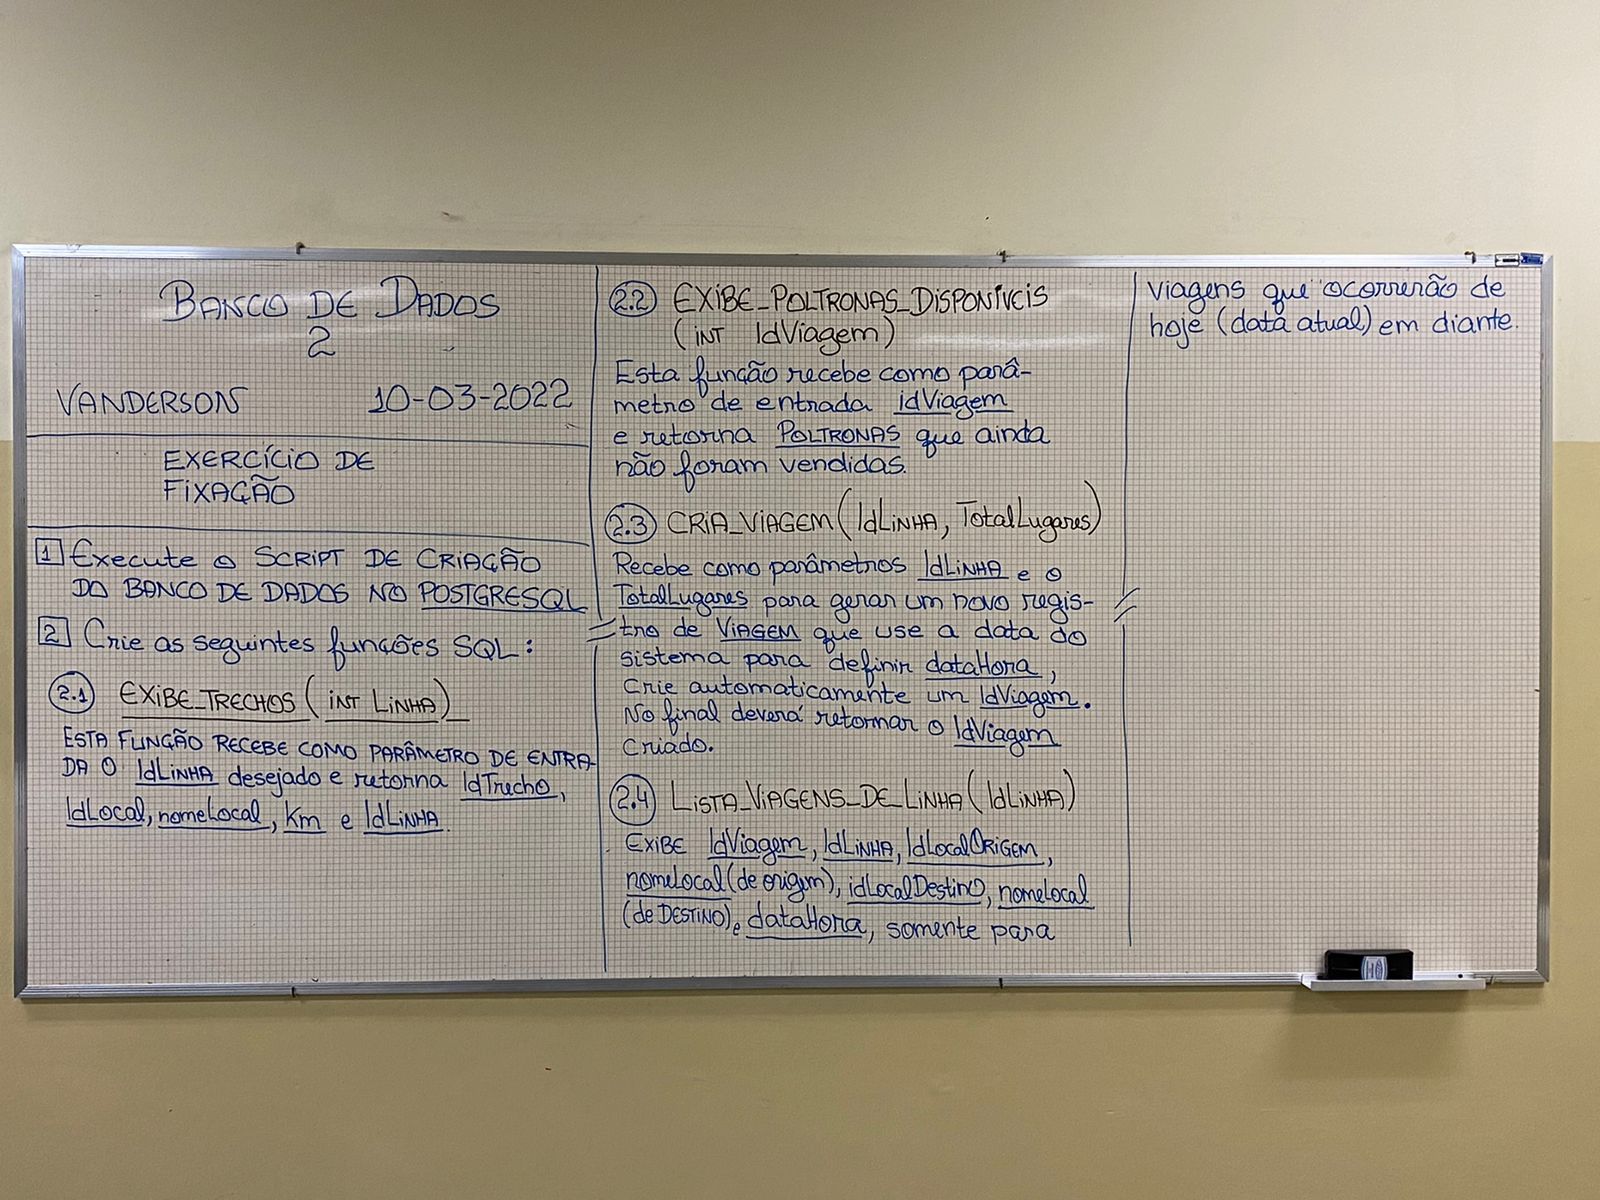 BANCO DE DADOS
2
VANDERSON 10-03-2022
EXERCÍCIO DE
FIXAÇÃO
1 Execute o SCRIPT DE CRIAÇÃO
DO BANCO DE DADOS NO POSTGRESQL
2 Crie as seguintes funções SQL:
2.1 EXIBE_TRECHOS (INT LINHA)
ESTA FUNÇÃO RECEBE COMO PARÂMETRO DE ENTRA-
DA O IdLINHA desejado e retorna IdTrecho,
IdLocal, nomeLocal, Km e IdLINHA.
2.2 EXIBE_POLTRONAS_DISPONÍVEIS
(INT IdViagem)
Esta função recebe como parâ-
metro de entrada idViagem
e retorna POLTRONAS que ainda
não foram vendidas.
2.3 CRIA_VIAGEM (IdLINHA, TotalLugares)
Recebe como parâmetros IdLINHA e o
TotalLugares para gerar um novo regis-
tro de VIAGEM que use a data do
sistema para definir dataHora,
Crie automaticamente um IdViagem.
No final deverá retornar o IdViagem
criado.
2.4 LISTA_VIAGENS_DE_LINHA (IdLINHA)
EXIBE IdViagem, IdLINHA, IdLocalORIGEM,
nomeLocal (de origem), idLocalDestino, nomeLocal
(de DESTINO), e dataHora, somente para
viagens que ocorrerão de
hoje (data atual) em diante.